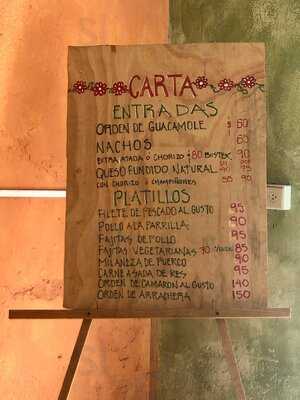 CARTA
ENTRADAS
ORDEN DE GUACAMOLE $ 50
NACHOS 65
EXTRA ASADA O CHORIZO $80 BISTEK 90
QUESO FUNDIDO NATURAL 90
CON CHORIZO O CHAMPIÑONES 95 95
PLATILLOS
FILETE DE PESCADO AL GUSTO 95
POLLO A LA PARRILLA 90
FAJITAS DE POLLO 95
FAJITAS VEGETARIANAS 70 85
MILANEZA DE PUERCO 90
CARNE ASADA DE RES 95
ORDEN DE CAMARON AL GUSTO 140
ORDEN DE ARRACHERA 150